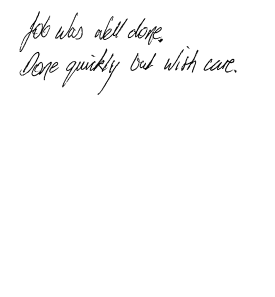 Job was well done.
Done quickly but with care.